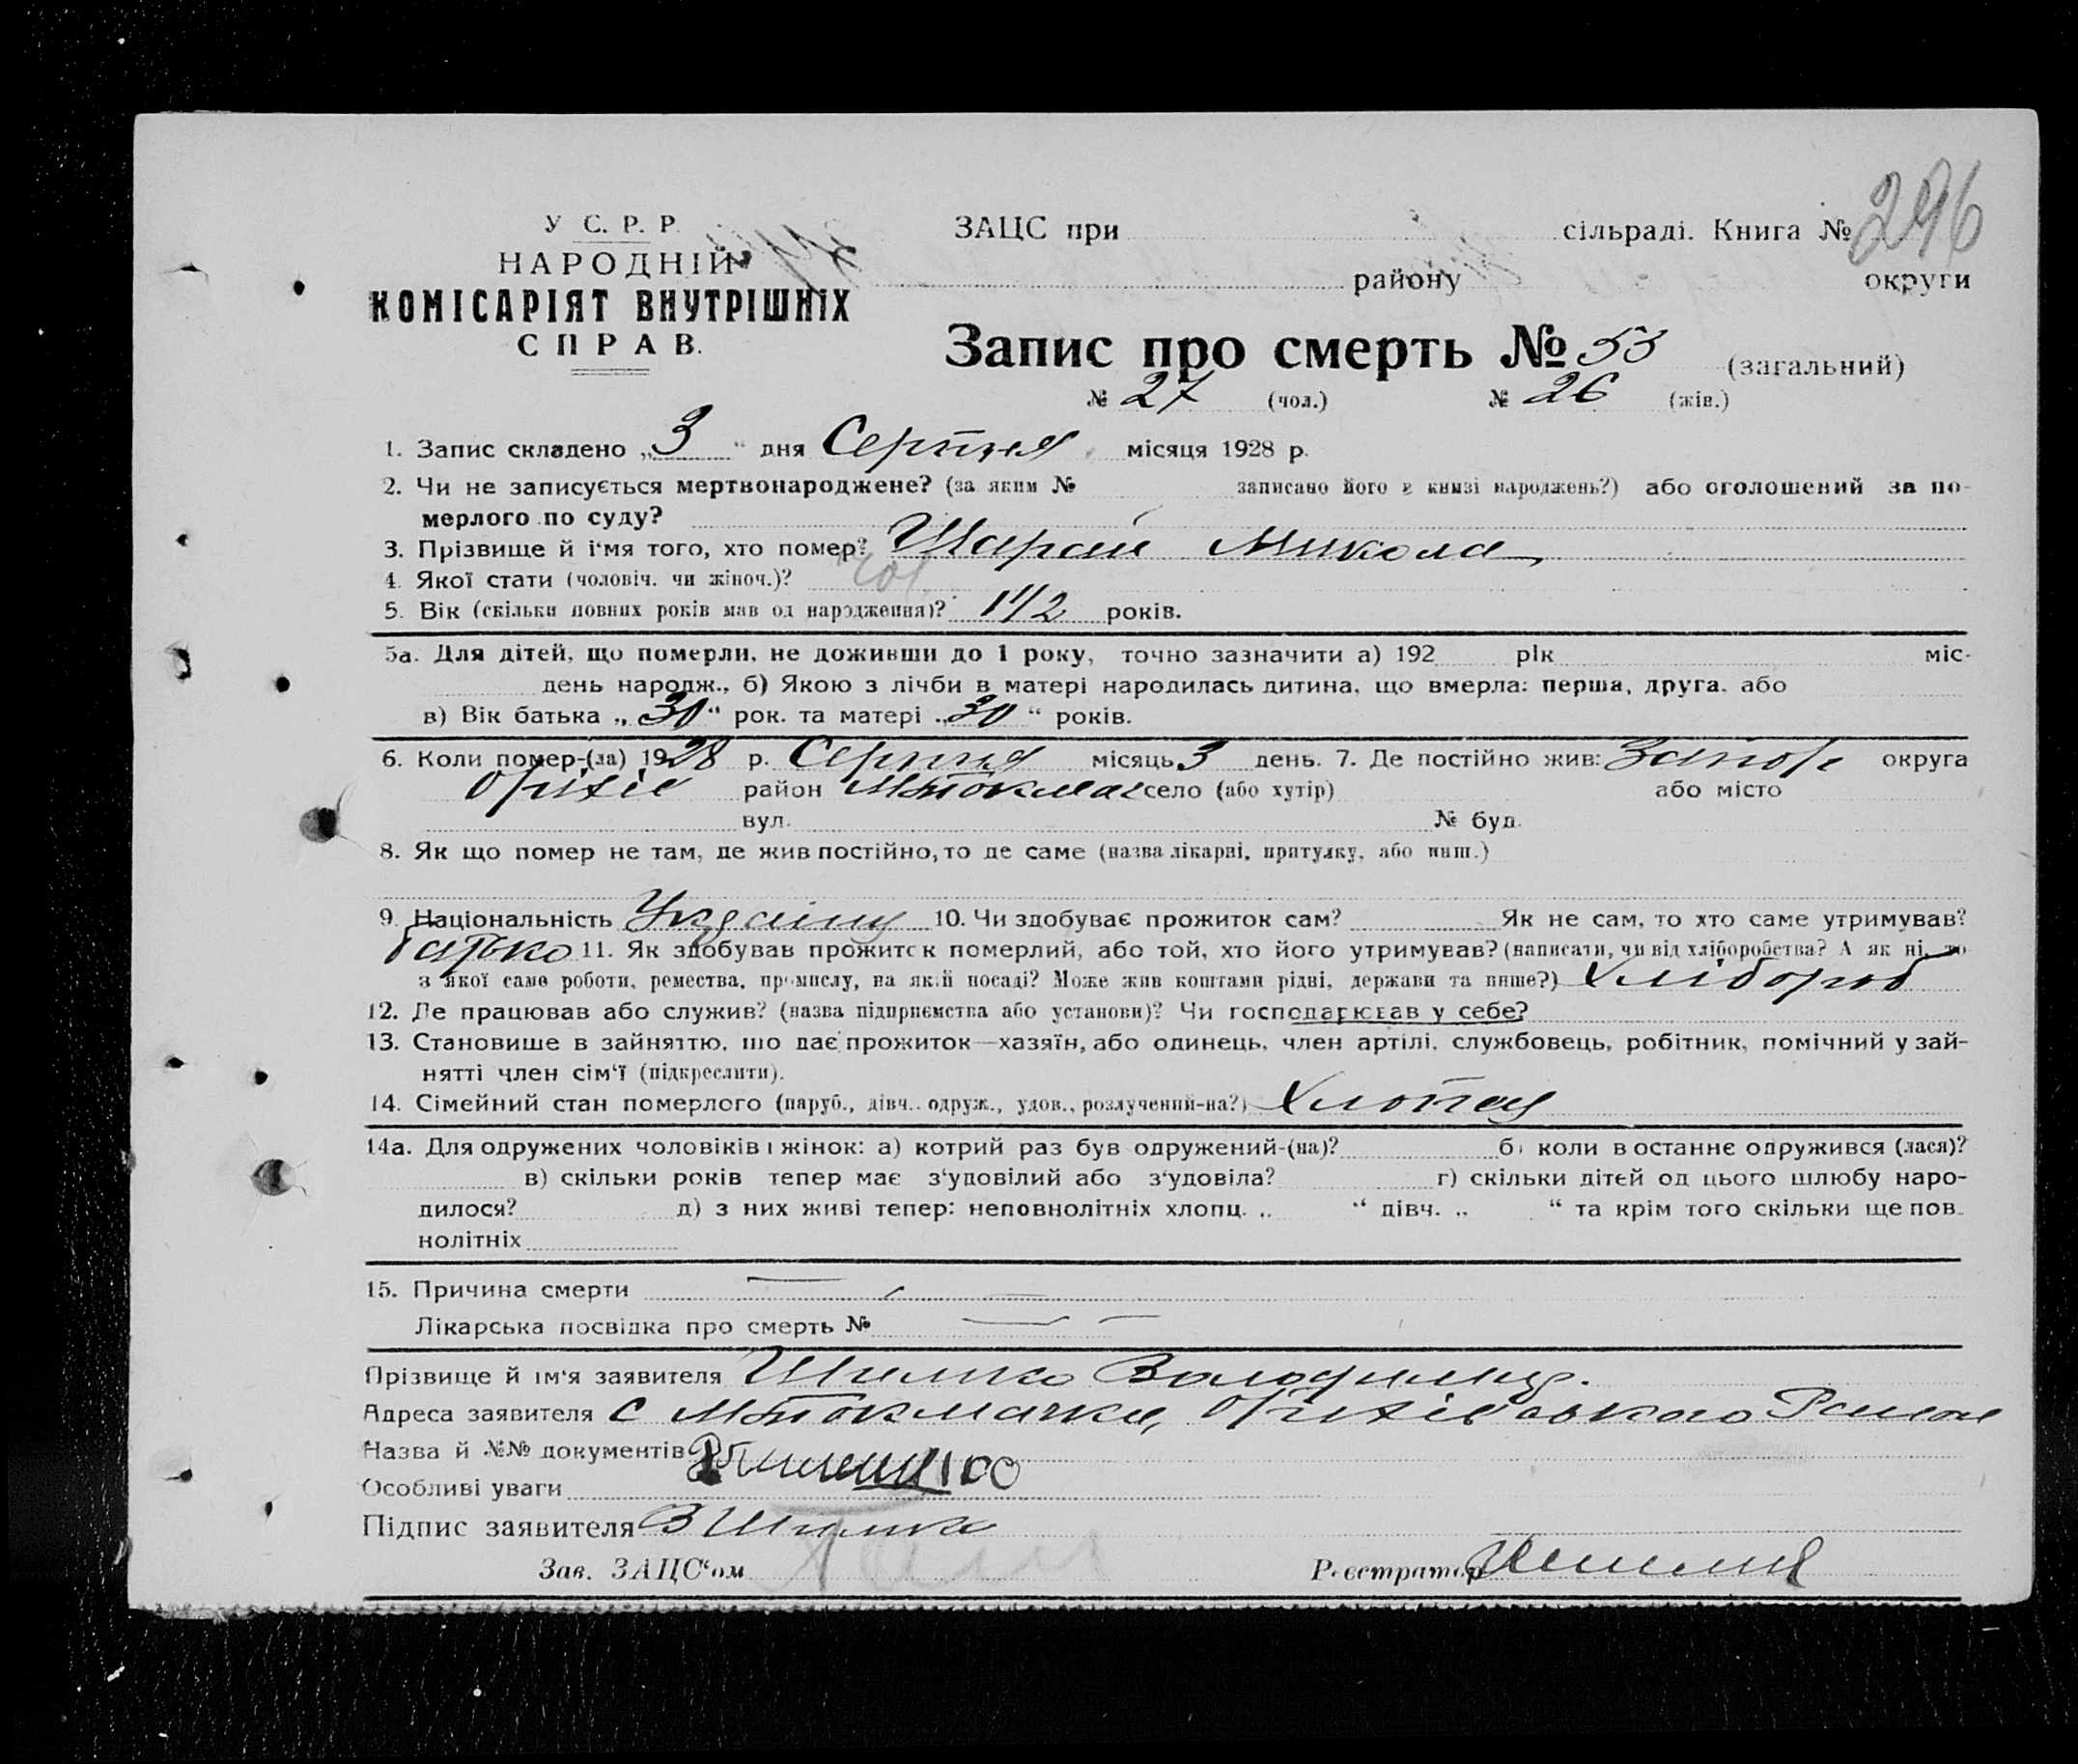 296
У С. Р. Р.
НАРОДНІЙ
КОМІСАРІЯТ ВНУТРІШНІХ
СПРАВ.
ЗАЦС при сільраді. Книга №
району округи
Запис про смерть № 53 (загальний)
№ 27 (чол.) № 26 (жін.)
1. Запис складено „3“ дня Серпня місяця 1928 р.
2. Чи не записується мертвонароджене? (за яким № записано його в книзі народжень?) або оголошений за по-
мерлого по суду?
3. Прізвище й і‘мя того, хто помер? Шарай Микола
4. Якої стати (чоловіч. чи жіноч.)? чол.
5. Вік (скільки повних років мав од народження)? 1 1/2 років.
5а. Для дітей, що померли, не доживши до 1 року, точно зазначити а) 192 рік міс-
день народж., б) Якою з лічби в матері народилась дитина, що вмерла: перша, друга, або
в) Вік батька „30“ рок. та матері „30“ років.
6. Коли помер-(ла) 1928 р. Серпня місяць 3 день. 7. Де постійно жив: Запор округа
Оріхів район М Токмач село (або хутір) або місто
вул. № буд.
8. Як що помер не там, де жив постійно, то де саме (назва лікарні, притулку, або инш.)
9. Національність Україн 10. Чи здобуває прожиток сам? Як не сам, то хто саме утримував?
батько 11. Як здобував прожиток померлий, або той, хто його утримував? (написати, чи від хліборобства? А як ні, то
з якої саме роботи, ремества, промислу, на якій посаді? Може жив коштами рідні, держави та инше?) Хлібороб
12. Де працював або служив? (назва підприємства або установи)? Чи господарював у себе?
13. Становище в зайняттю, що дає прожиток—хазяїн, або одинець, член артілі, службовець, робітник, помічний у зай-
нятті член сім‘ї (підкреслити).
14. Сімейний стан померлого (паруб., дівч., одруж., удов., розлучений-на?) Хлопец
14а. Для одружених чоловіків і жінок: а) котрий раз був одружений-(на)? б) коли востаннє одружився (лася)?
в) скільки років тепер має з‘удовілий або з‘удовіла? г) скільки дітей од цього шлюбу наро-
дилося? д) з них живі тепер: неповнолітніх хлопц. „ “ дівч. „ “ та крім того скільки ще пов-
нолітніх
15. Причина смерти — —
Лікарська посвідка про смерть № — —
Прізвище й ім‘я заявителя Шимко Володимир.
Адреса заявителя с М Токмачка, Оріхівського Району
Назва й №№ документів
Особливі уваги
Підпис заявителя В Шимко
Зав. ЗАЦС‘ом Реєстратор